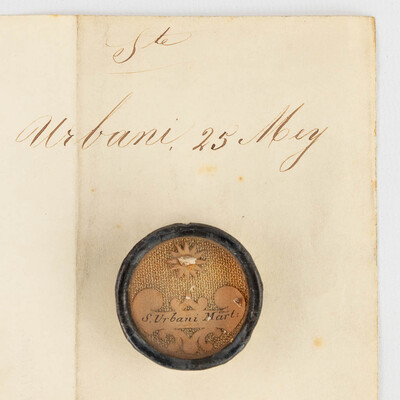 Ste
Urbani, 25 Mey
S. Urbani Mart.